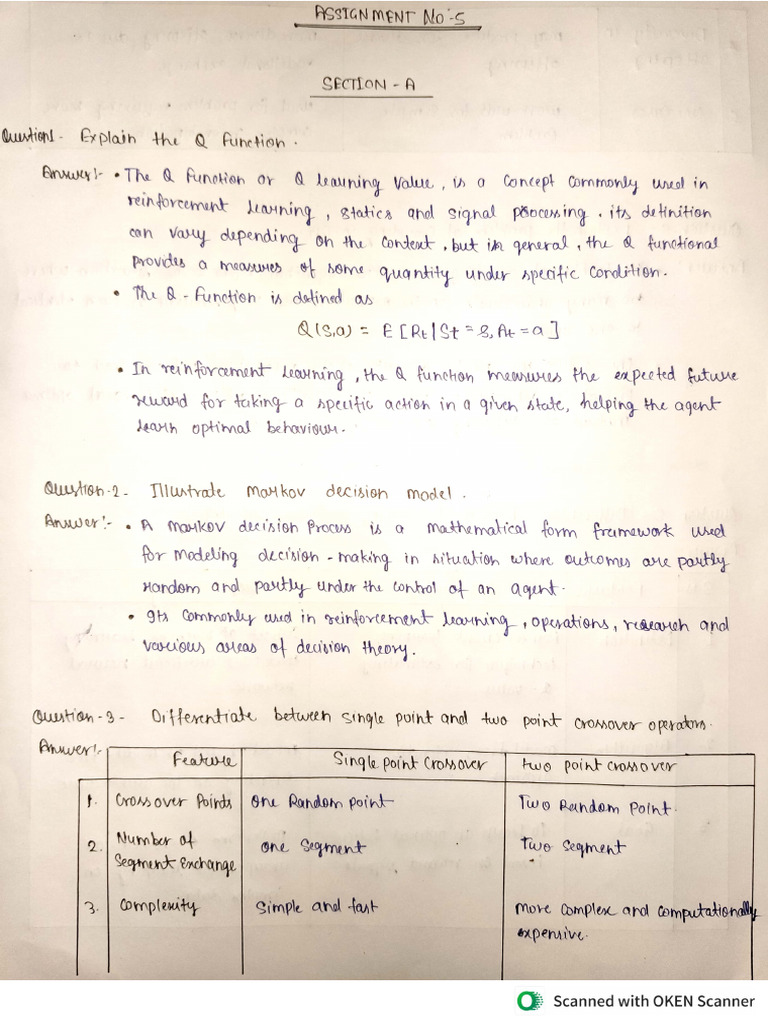 ASSIGNMENT No:-5
SECTION - A
Question1- Explain the Q Function.
Answer:- • The Q Function or Q learning value, is a concept commonly used in
reinforcement learning, statics and signal processing. its definition
can vary depending on the context, but in general, the Q functional
provides a measures of some quantity under specific condition.
• The Q-Function is defined as
Q(S,a) = E[Rt|St=S,At=a]
• In reinforcement learning, the Q function measures the expected future
reward for taking a specific action in a given state, helping the agent
learn optimal behaviour.
Question-2- Illustrate markov decision model.
Answer:- • A markov decision process is a mathematical form framework used
for modeling decision-making in situation where outcomes are partly
random and partly under the control of an agent.
• Its commonly used in reinforcement learning, operations, research and
various areas of decision theory.
Question-3- Differentiate between single point and two point crossover operators.
Answer:-
Feature Single point Crossover two point crossover
1. Crossover Points One Random point Two Random Point.
2. Number of Segment Exchange one Segment Two Segment
3. Complexity Simple and fast More complex and computationally
expensive.
Scanned with OKEN Scanner